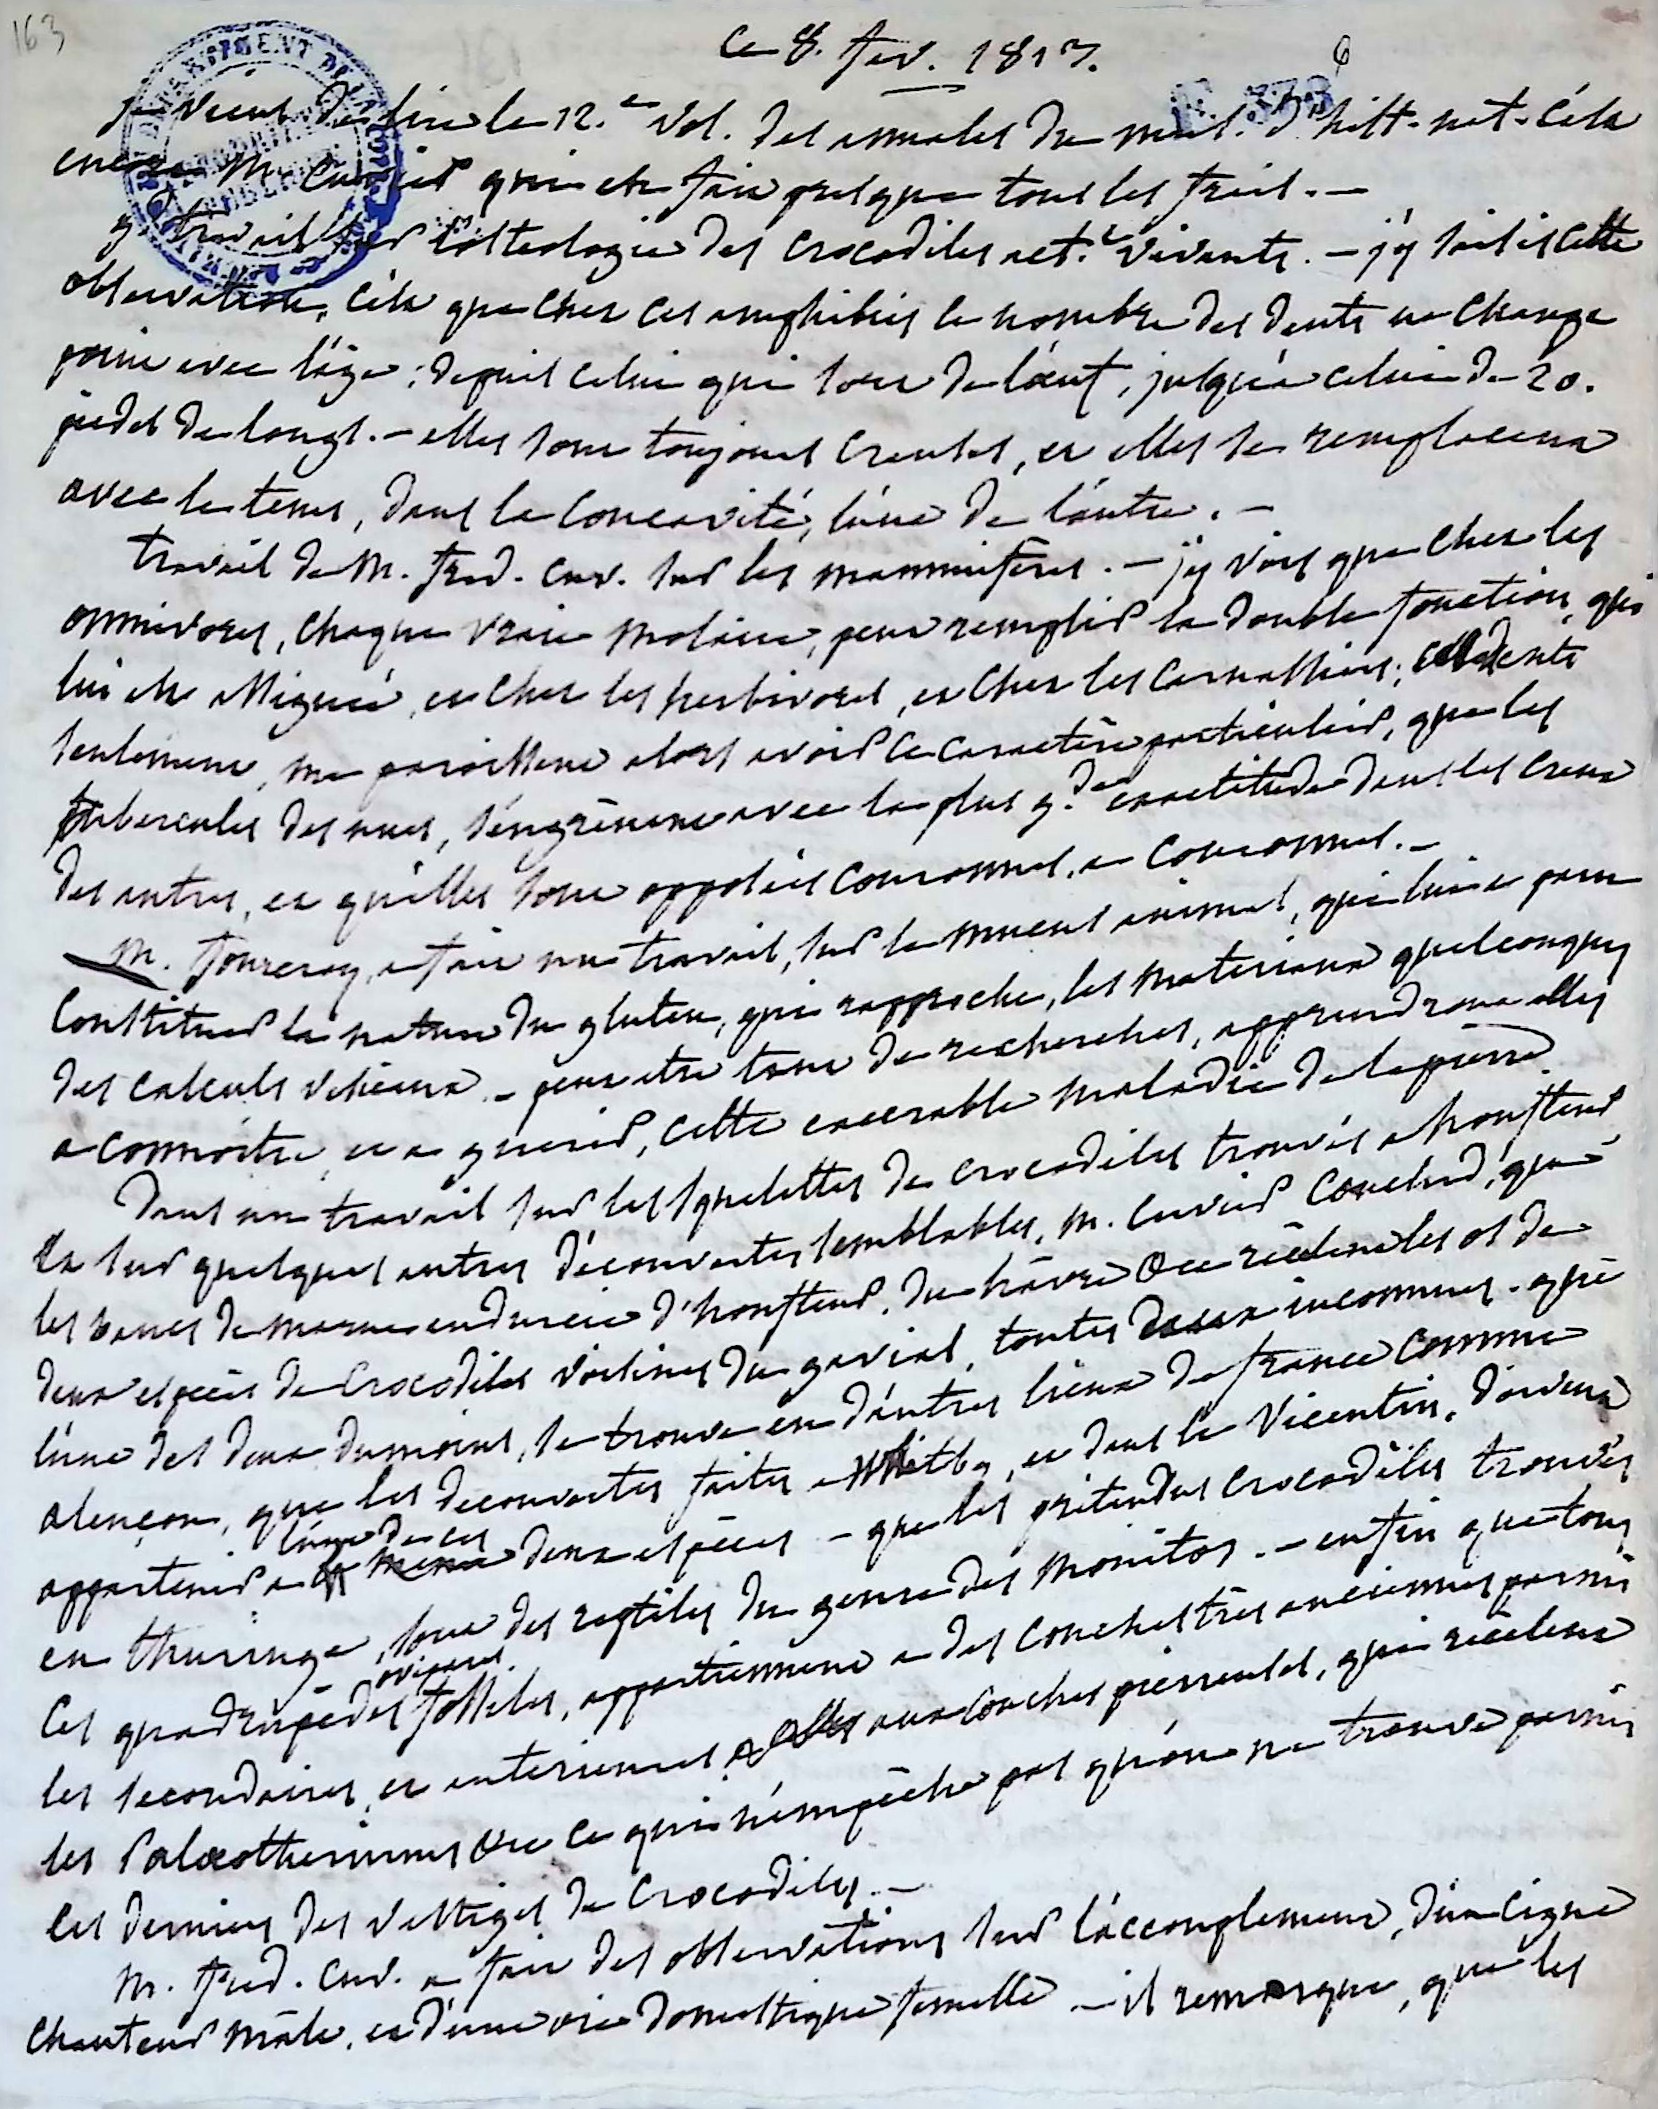 163
ce 8. fev. 1813.
6
je viens de lire le 12.e vol. des annales du mus. d'hist. nat. c'est
encore M. Cuvier qui en fair presque tous les frais. —
travail sur l'osteologie des crocodiles act.t vivants. — j'y saisis cette
observation, c'est que chez ces amphibies le nombre des dents ne change
poine avec l'âge; depuis celui qui sort de l'œuf, jusqu'a celui de 20.
pieds de longs. — elles sont toujours creuses, et elles se remplacent
avec le tems, dans la concavité, l'une de l'autre. —
travail de M. fred. cuv. sur les mammifères. — j'y vois que chez les
omnivores, chaque vraie molaire, peut remplir la double fonction, qui
lui est assignée, et chez les herbivores, et chez les carnassiers; dents
seulement, me paroissent alors avoir ce caractère particulier, que les
tubercules des unes, s'engrènent avec la plus g.de exactitude dans les creux
des autres, et qu'elles sont opposées couronnes, a couronnes. —
M. fourcroy, a fait un travail, sur le mucus animal, qui lui a paru
constituer la nature du gluten, qui rapproche, les materiaux quelconques
des calculs vesicaux. — peut etre tant de recherches, apprendront elles
a connoitre, et a guerir, cette execrable maladie de la pierre.
Dans un travail sur les squelettes de crocodiles trouvés a honfleur
et sur quelques autres découvertes semblables, M. Cuvier conclud, que
les bancs de marne endurcie d'honfleur, du hâvre &c recèlent les os de
deux espèces de crocodiles voisines du gavial, toutes deux inconnues. que
l'une des deux dumoins, se trouve en d'autres lieux de france comme
alençon, que les decouvertes faites a Whitby, et dans le Vicentin, doivent
appartenir a l'une de ces deux espèces — que les prétendus crocodiles trouvés
en thuringe, sont des reptiles du genre des monitor. — enfin que tous
ces quadrupèdes ovipares fossiles, appartiennent a des couches très anciennes parmi
les secondaires, et anterieures aux couches pierreuses, qui recèlent
les Palæotheriums &c ce qui n'empêche pas qu'on ne trouve parmi
ces derniers des vestiges de crocodiles. —
M. fred. Cuv. a fait des observations sur l'accouplement, d'un cigne
chanteur mâle, et d'une oie domestique femelle — il remarque, que les